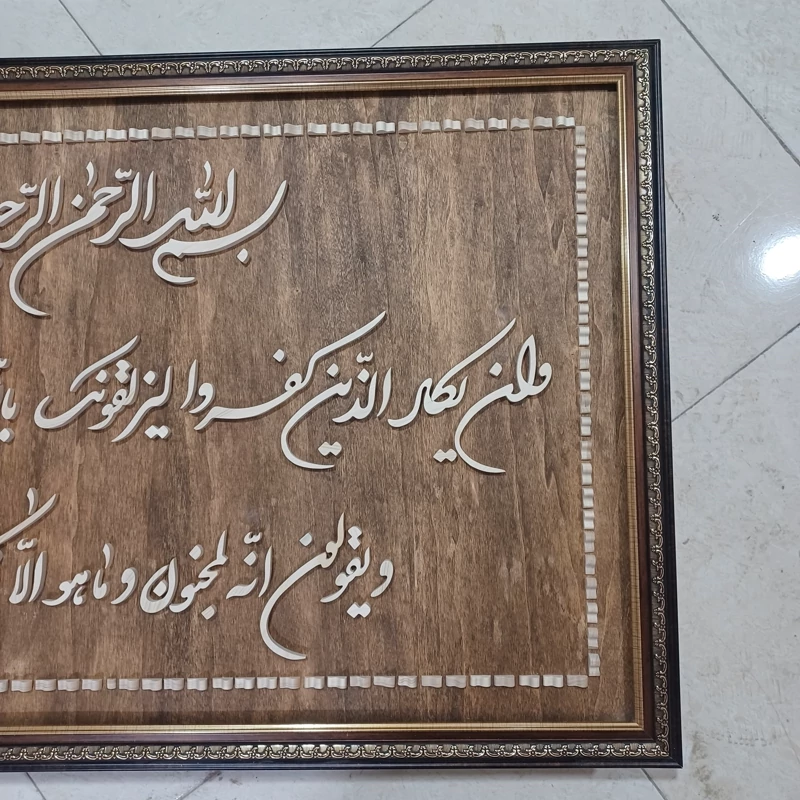 بسم الله الرّحمن الرّح
وان یکاد الّذین کفروا لیزلقونک با
ویقولون انّه لمجنون و ما هو الّا